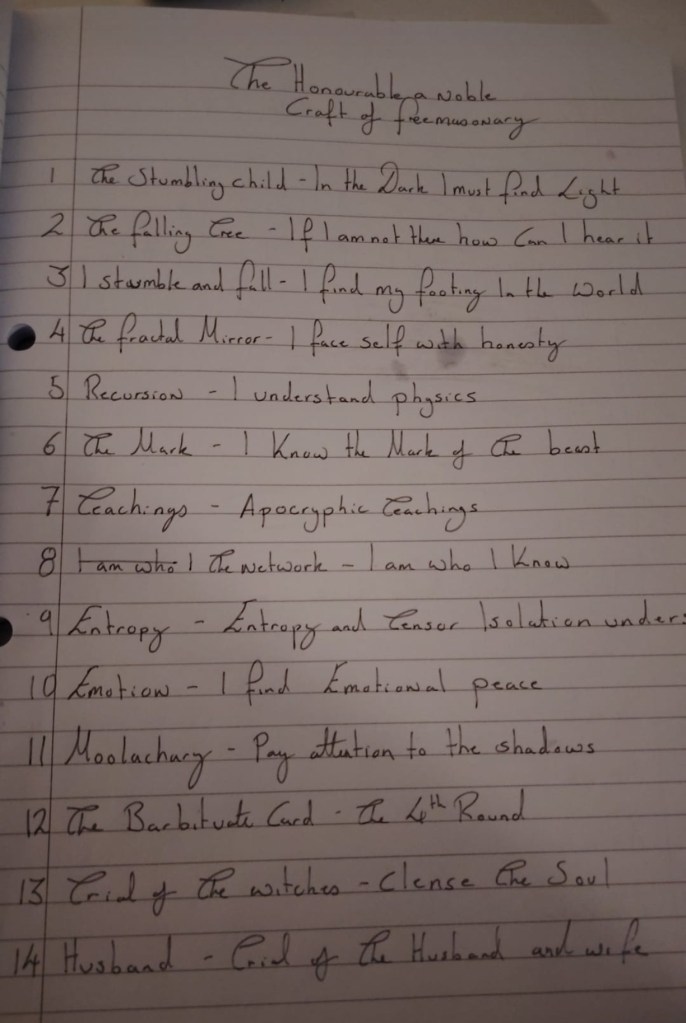 The Honourable a Noble
Craft of freemasonary
1 The Stumbling child - In the Dark I must find Light
2 The falling Tree - If I am not there how Can I hear it
3 I stumble and fall - I find my footing In the World
4 The fractal Mirror - I face self with honesty
5 Recursion - I understand physics
6 The Mark - I Know the Mark of The beast
7 Teachings - Apocryphic Teachings
8 I am who I The Network - I am who I Know
9 Entropy - Entropy and Tensor Isolation unders
10 Emotion - I find Emotional peace
11 Moolachary - Pay attention to the shadows
12 The Barbituate Card - The 4th Round
13 Trial of The witches - Clense The Soul
14 Husband - Trial of The Husband and wife